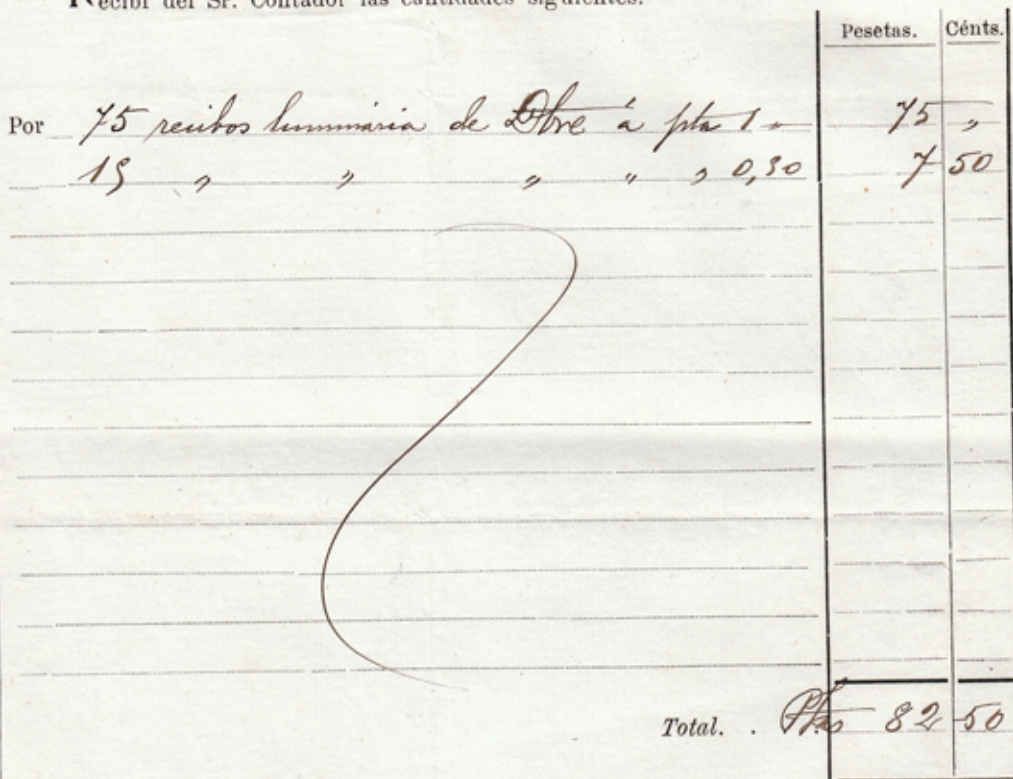 Recibí del Sr. Contador las cantidades siguientes:
Pesetas. Cénts.
Por 75 recibos luminária de Dbre á pta 1 „ 75 „
15 „ „ „ „ „ 0,50 7 50
Total. . Ptas 82 50